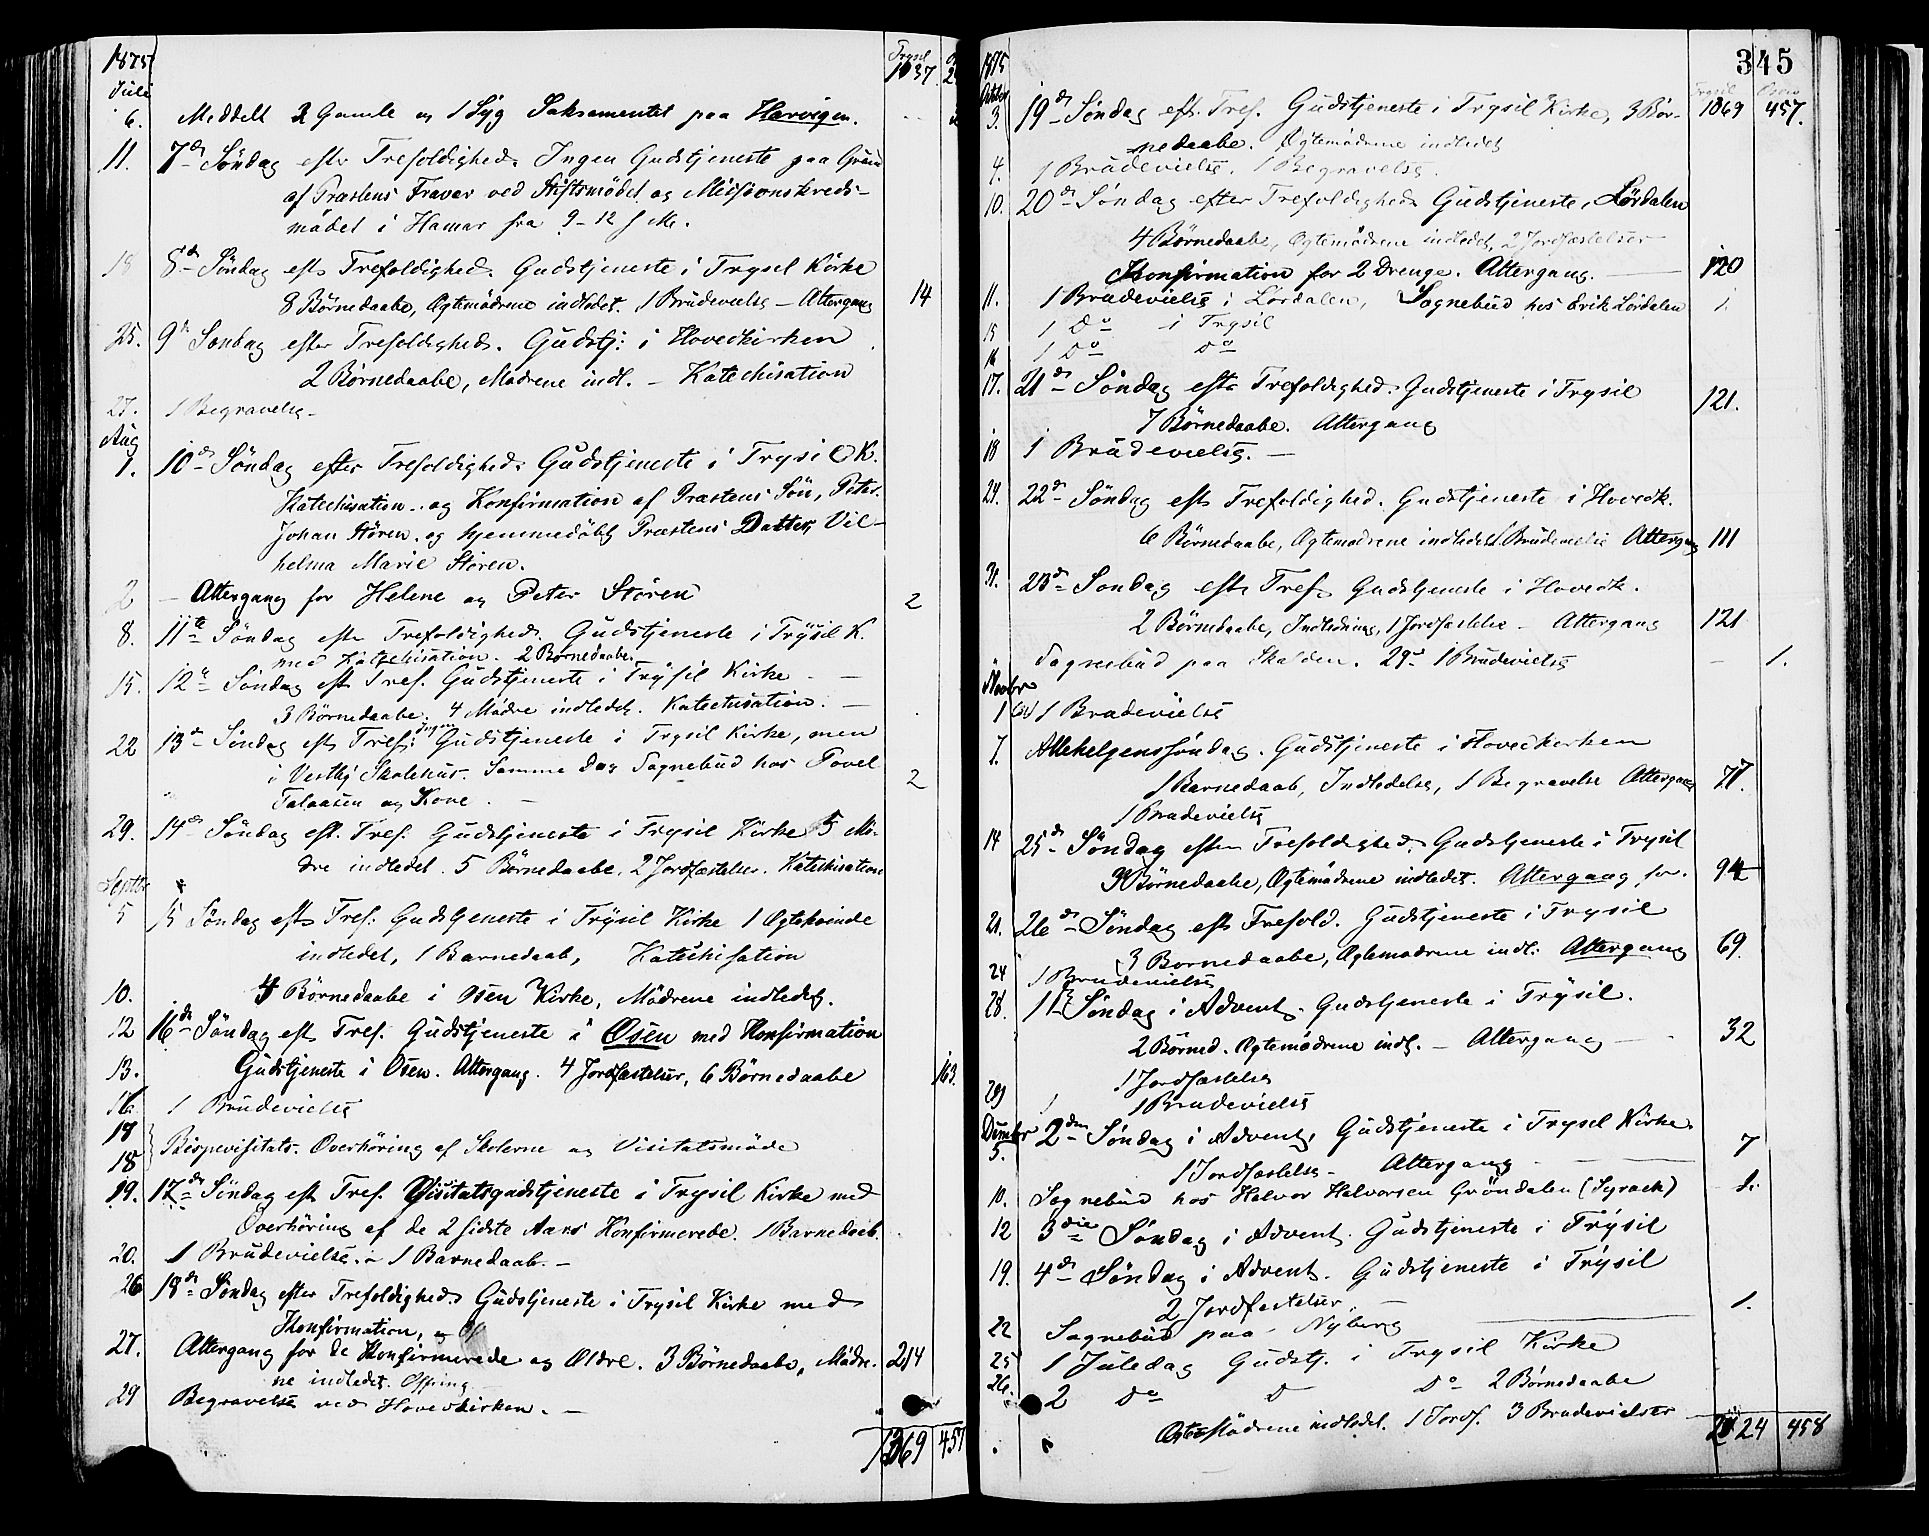 1875
Juli
Trysil
1037.
6. Meddelt 2 Gamle og 1 Syg Sakramentet paa Harvigen.
11. 7de Søndag efter Trefoldighed. Ingen Gudstjeneste paa Grund
af Præstens Fravær ved Stiftsmødet og Missionskreds-
mødet i Hamar fra 9-12 f. M.
18 8de Søndag eft. Trefoldighed. Gudstjeneste i Trysil Kirke
8 Børnedaabe, Ægtemødrene indledet. 1 Brudevielse - Altergang 14
25. 9de Søndag efter Trefoldighed. Gudstj: i Hovedkirken
2 Børnedaabe, Mødrene indl. - Katechisation
27. 1 Begravelse
Aug
1. 10de Søndag efter Trefoldighed. Gudstjeneste i Trysil K.
Katechisation og Konfirmation af Præstens Søn, Peter
Johan Støren. og hjemmedøbt Præstens Datter, Vil-
helma Marie Støren.
2 - Altergang for Helene og Peter Støren 2
8. 11te Søndag efter Trefoldighed. Gudstjeneste i Trysil K.
med Katechisation. 2 Børnedaabe.
15. 12te Søndag eft Tref. Gudstjeneste i Trysil Kirke -
3 Børnedaabe. 4 Mødre indledet. Katechisation. -
22 13de Søndag eft Tref: Ingen Gudstjeneste i Trysil Kirke, men
i Vestby Skolehus. Samme Dag Sognebud hos Povel
Talaasen og Kone. - 2
29. 14de Søndag eft. Tref. Gudstjeneste i Trysil Kirke 5 Mø-
dre indledet. 5 Børnedaabe, 2 Jordfæstelser. Katechisation
Septbr
5 15 Søndag eft Tref: Gudstjeneste i Trysil Kirke 1 Ægtekvinde
indledet, 1 Barnedaab, Katechisation
10. 4 Børnedaabe i Osen Kirke, Mødrene indledet.
12 16de Søndag eft Tref. Gudstjeneste i Osen med Konfirmation
13. Gudstjeneste i Osen. Altergang. 4 Jordfæstelser, 6 Børnedaabe 163.
16. 1 Brudevielse
17
18 Bispevisitats. Overhøring af Skolerne og Visitatsmøde
19. 17de Søndag eft Tref. Visitatsgudstjeneste i Trysil Kirke med
Overhøring af de 2 sidste Aars Konfirmerede. 1 Barnedaab.
20. 1 Brudevielse. - 1 Barnedaab. -
26 18de Søndag efter Trefoldighed. Gudstjeneste i Trysil Kirke med
Konfirmation,
27. Altergang for de Konfirmerede og Ældre. 3 Børnedaabe, Mødre- 214
ne indledet. Offring
29 Begravelse ved Hovedkirken. -
1269 457
345
1875
Oktbr
Trysil Osen
1069 457.
3. 19de Søndag eft. Tref. Gudstjeneste i Trysil Kirke, 3 Bør-
nedaabe. Ægtemødrene indledet
4. 1 Brudevielse. 1 Begravelse.
10. 20de Søndag efter Trefoldighed. Gudstjeneste, Lørdalen
4 Børnedaabe, Ægtemødrene indledet, 2 Jordfæstelser
Konfirmation for 2 Drenge. Altergang. 120
11. 1 Brudevielse i Lørdalen, Sognebud hos Erik Lørdalen 1.
15 1 Do i Trysil
16 1 Do do
17. 21de Søndag eft. Trefoldighed. Gudstjeneste i Trysil
7 Børnedaabe. Altergang 121.
18 1 Brudevielse. -
24. 22de Søndag eft Trefoldighed. Gudstjeneste i Hovedk.
6 Børnedaabe, Ægtemødrene indledet 1 Brudevielse Altergang 111
31. 23de Søndag eft Tref. Gudstjeneste i Hovedk.
2 Børnedaabe, Indledning, 1 Jordfæstelse - Altergang 121
Sognebud paa Skalden. 29de 1 Brudevielse - 1.
Novbr
1 1 Brudevielse
7. Allehelgenssøndag. Gudstjeneste i Hovedkirken
1 Barnedaab, Indledelse, 1 Begravelse Altergang 77.
1 Brudevielse
14 25de Søndag efter Trefoldighed. Gudstjeneste i Trysil
3 Børnedaabe, Ægtemødrene indledet. Altergang for. 94
21. 26de Søndag eft Trefold. Gudstjeneste i Trysil
3 Børnedaabe, Ægtemødrene indl: Altergang 69.
24 1 Brudevielse
28. 1ste Søndag i Advent. Gudstjeneste i Trysil.
2 Børned. Ægtemødrene indl. - Altergang - 32
1 Jordfæstelse
29 1 Brudevielse
Decmbr
5. 2den Søndag i Advent, Gudstjeneste i Trysil Kirke
1 Jordfæstelse - Altergang 7
10. Sognebud hos Halvor Halvorsen Grøndalen (Syrach) 1.
12 3die Søndag i Advent. Gudstjeneste i Trysil
19. 4de Søndag i Advent. Gudstjeneste i Trysil
2 Jordfæstelser. -
22 Sognebud paa Nyberg 1.
25 1 Juledag Gudstj. i Trysil Kirke
26. 2 do D do 2 Børnedaabe
Ægtemødrene indledet. 1 Jordf. 3 Brudevielser
24 458